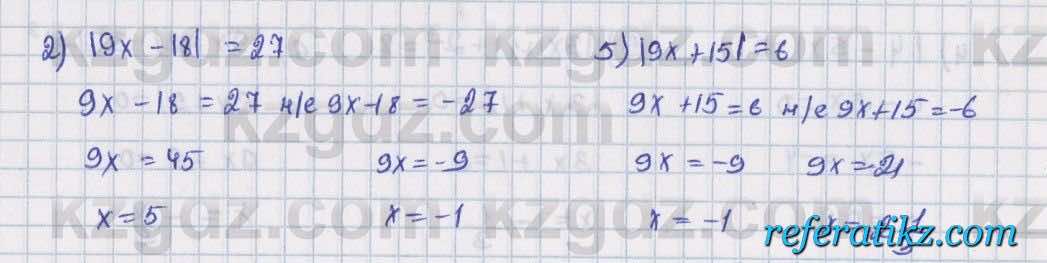 2) |9x - 18| = 27
9x - 18 = 27 н/е 9x - 18 = -27
9x = 45 9x = -9
x = 5 x = -1
5) |9x + 15| = 6
9x + 15 = 6 н/е 9x + 15 = -6
9x = -9 9x = -21
x = -1
kzgdz.com
referatikz.com